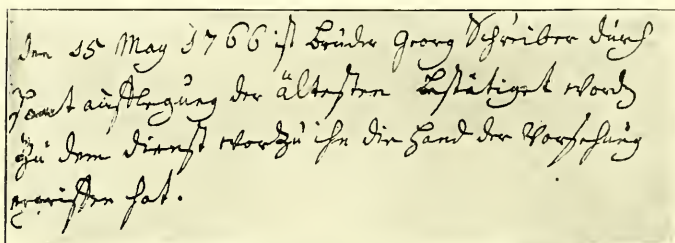 den 15 May 1766 ist brüder Georg Schreiber dürch
Hant aufflegung der ältesten bestätiget word
zu dem dienst worzu ihn die Hand der Vorsehung
ergriffen hat.